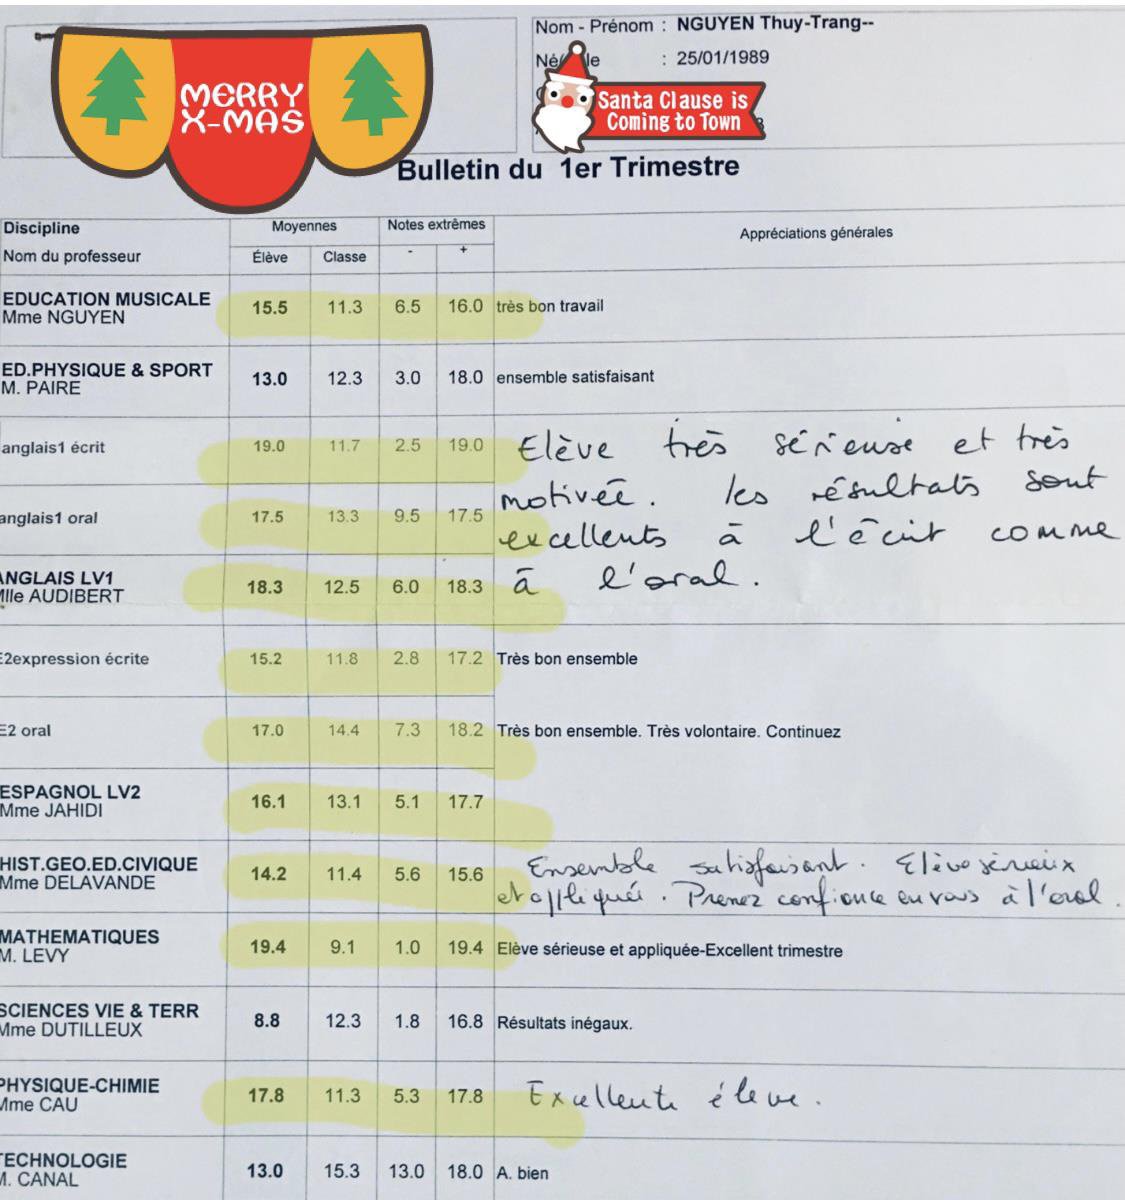 MERRY
X-MAS
Nom - Prénom : NGUYEN Thuy-Trang--
Né/ le : 25/01/1989
Santa Clause is
Coming to Town
Bulletin du 1er Trimestre
Discipline
Nom du professeur
Moyennes
Élève Classe
Notes extrêmes
- +
Appréciations générales
EDUCATION MUSICALE
Mme NGUYEN
15.5 11.3 6.5 16.0 très bon travail
ED.PHYSIQUE & SPORT
M. PAIRE
13.0 12.3 3.0 18.0 ensemble satisfaisant
anglais1 écrit 19.0 11.7 2.5 19.0
anglais1 oral 17.5 13.3 9.5 17.5
ANGLAIS LV1
Mlle AUDIBERT
18.3 12.5 6.0 18.3
Elève très sérieuse et très
motivée. les résultats sont
excellents à l'écrit comme
à l'oral.
E2expression écrite 15.2 11.8 2.8 17.2 Très bon ensemble
E2 oral 17.0 14.4 7.3 18.2 Très bon ensemble. Très volontaire. Continuez
ESPAGNOL LV2
Mme JAHIDI
16.1 13.1 5.1 17.7
HIST.GEO.ED.CIVIQUE
Mme DELAVANDE
14.2 11.4 5.6 15.6
Ensemble satisfaisant. Elève sérieux
et appliquée. Prenez confiance en vous à l'oral.
MATHEMATIQUES
M. LEVY
19.4 9.1 1.0 19.4 Elève sérieuse et appliquée-Excellent trimestre
SCIENCES VIE & TERR
Mme DUTILLEUX
8.8 12.3 1.8 16.8 Résultats inégaux.
PHYSIQUE-CHIMIE
Mme CAU
17.8 11.3 5.3 17.8 Excellente élève.
TECHNOLOGIE
M. CANAL
13.0 15.3 13.0 18.0 A. bien